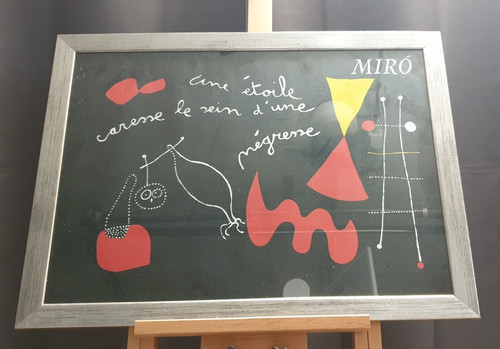 MIRÓ
une étoile
caresse le sein d'une
négresse